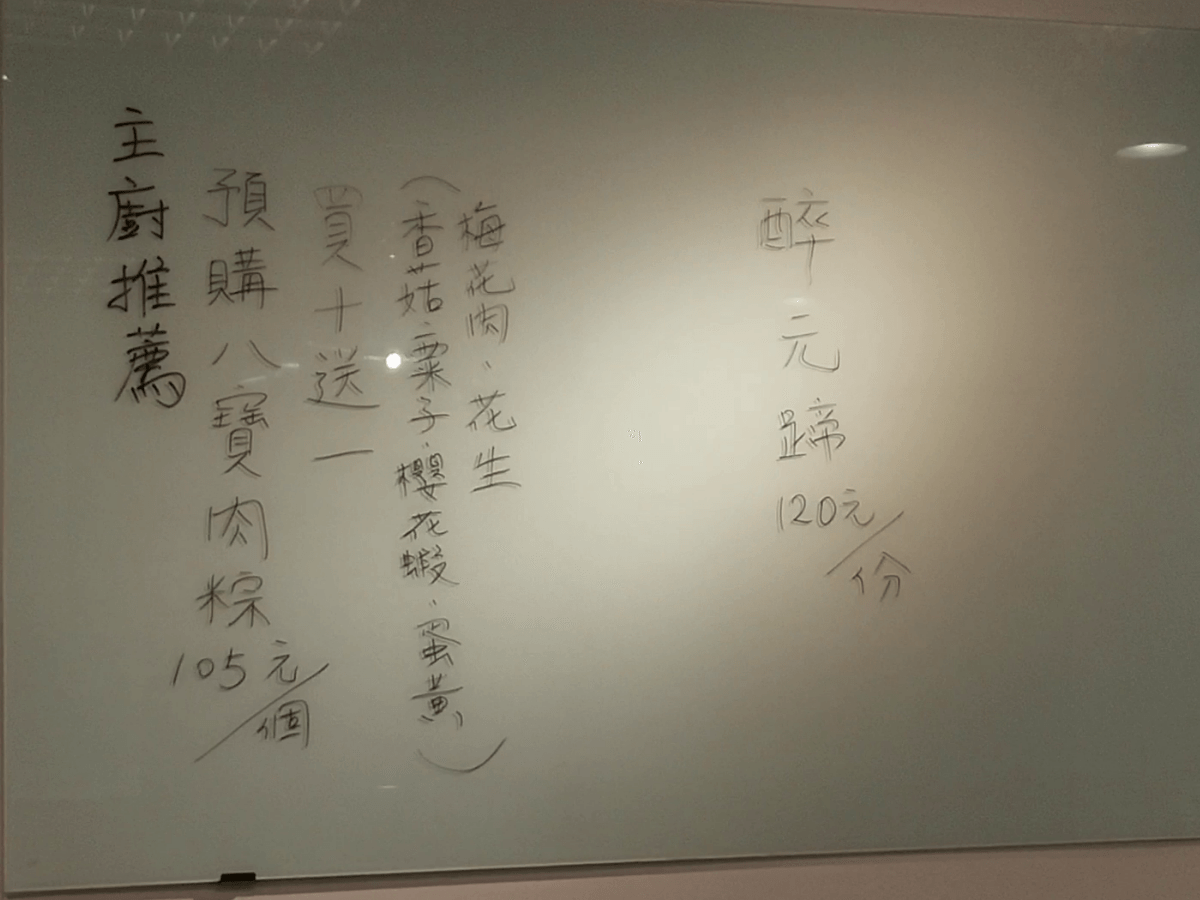 主廚推薦
預購八寶肉粽
105元/個
買十送一
(香菇、粟子、櫻花蝦、蛋黃
梅花肉、花生)
醉元蹄
120元/份